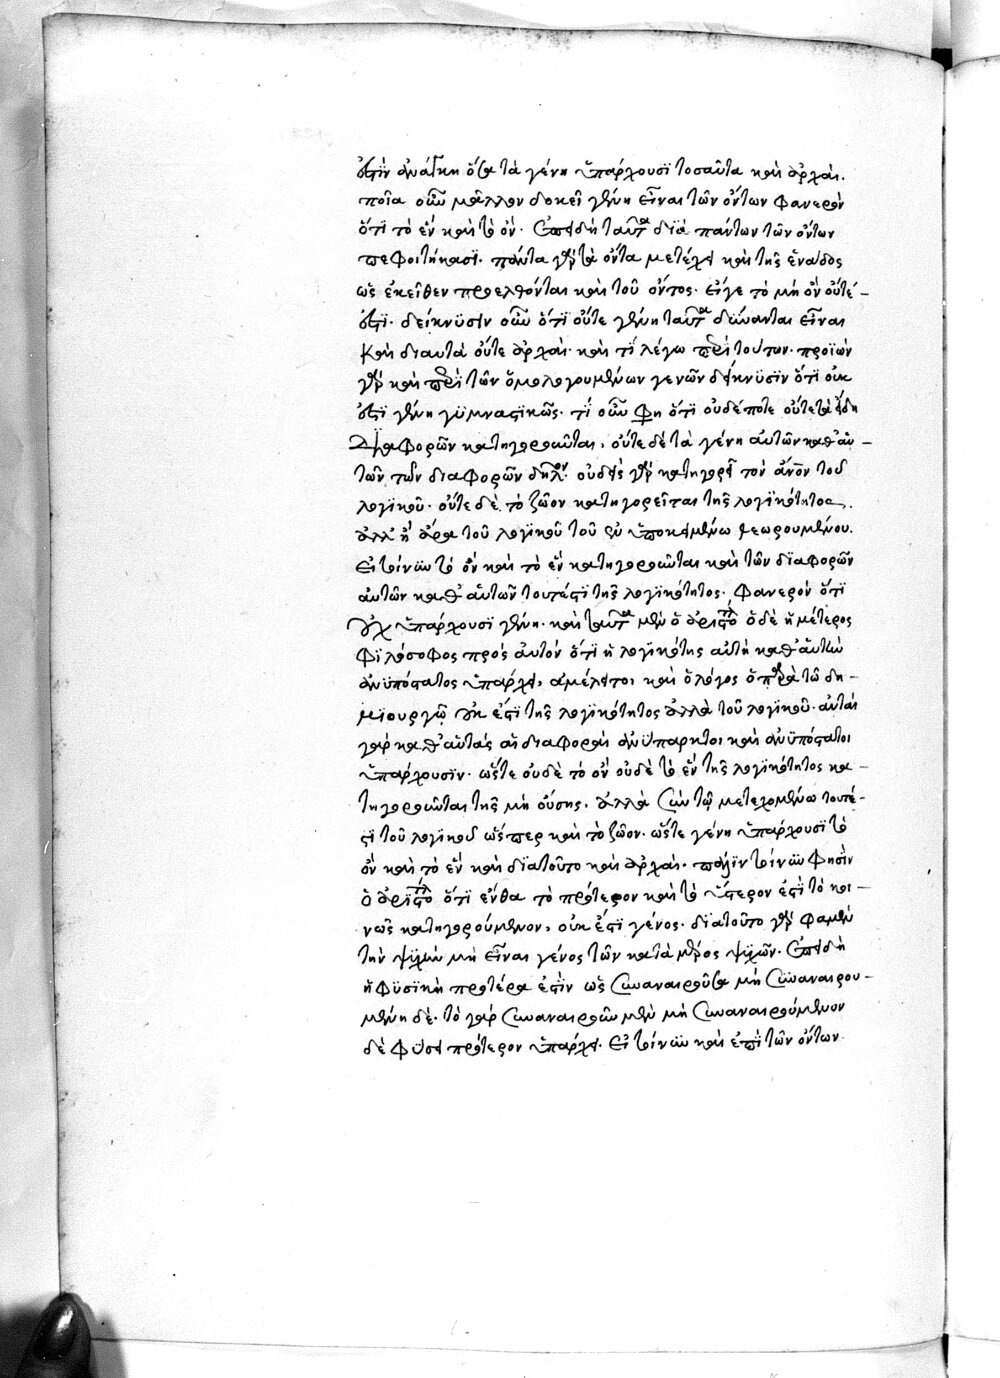 ἐστὶν ἀνάγκη ὅσα τὰ γένη ὑπάρχουσι τοσαῦτα καὶ ἀρχάς.
ποῖα οὖν μᾶλλον δοκεῖ γένη εἶναι τῶν ὄντων φανερὸν
ὅτι τὸ ἓν καὶ τὸ ὄν. ἐπειδὴ ταῦτα διὰ πάντων τῶν ὄντων
πεφοιτήκασι. πάντα γὰρ τὰ ὄντα μετέχει καὶ τῆς ἑνάδος
ὡς ἐκεῖθεν προελθόντα καὶ τοῦ ὄντος. εἴγε τὸ μὴ ὂν οὐτέ-
ἐστι. δείκνυσιν οὖν ὅτι οὔτε γένη ταῦτα δύνανται εἶναι
καὶ διαυτὰ οὔτε ἀρχάς. καὶ τί λέγω περὶ τούτων. προϊὼν
γὰρ καὶ περὶ τῶν ὁμολογουμένων γενῶν δείκνυσιν ὅτι οὐκ
ἐστι γένη γυμναστικῶς. τί οὖν φη ὅτι οὐδέποτε οὔτε τὰ εἴδη
διαφορῶν κατηγοροῦνται, οὔτε δὲ τὰ γένη αὐτῶν καθ' αὑ-
τῶν τῶν διαφορῶν δηλον. οὐδεὶς γὰρ κατηγορεῖ τὸν ἄνον τοῦ
λογικοῦ. οὔτε δὲ τὸ ζῶον κατηγορεῖται τῆς λογικότητος.
ἀλλ' ἢ ἄρα τοῦ λογικοῦ τοῦ ἐν ὑποκειμένω θεωρουμένου.
εἰ τοίνυν τὸ ὂν καὶ τὸ ἓν κατηγοροῦνται καὶ τῶν διαφορῶν
αὐτῶν καθ' αὑτῶν τουτέστι τῆς λογικότητος. φανερὸν ὅτι
οὐχ ὑπάρχουσι γένη. καὶ ταῦτα μὲν ὁ ἀριστο ὁ δὲ ἡμέτερος
φιλόσοφος πρὸς αὐτὸν ὅτι ἡ λογικότης αὐτὴ καθ' αὑτὴν
ἀνυπόστατος ὑπάρχει, ἀμέλειτοι καὶ ὁ λόγος ὁ παρὰ τῶ δη-
μιουργῷ οὐκ ἐστι τῆς λογικότητος ἀλλὰ τοῦ λογικοῦ. αὐταὶ
γὰρ καθ' αὑτὰς αἱ διαφοραὶ ἀνύπαρκτοι καὶ ἀνυπόστατοι
ὑπάρχουσιν. ὥστε οὐδὲ τὸ ὂν οὐδὲ τὸ ἓν τῆς λογικότητος κα-
τηγοροῦνται τῆς μὴ οὔσης. ἀλλὰ σὺν τῷ μετεχομένω τουτέ-
στι τοῦ λογικοῦ ὥσπερ καὶ τὸ ζῶον. ὥστε γένη ὑπάρχουσι τὸ
ὂν καὶ τὸ ἓν καὶ διατοῦτο καὶ ἀρχάς. πάλιν τοίνυν φησὶν
ὁ ἀριστο ὅτι ἔνθα τὸ πρότερον καὶ τὸ ὕστερον ἐστὶ τὸ κοι-
νῶς κατηγορούμενον, οὐκ ἐστι γένος. διατοῦτο γὰρ φαμὲν
τὴν ψυχὴν μὴ εἶναι γένος τῶν κατὰ μέρος ψυχῶν. ἐπειδὴ
ἡ φυσικὴ προτέρα ἐστὶν ὡς συναναιροῦσα μὴ συναναιρου-
μένη δὲ. τὸ γὰρ συναναιροῦν μὲν μὴ συναναιρούμενον
δὲ φύσει πρότερον ὑπάρχει. εἰ τοίνυν καὶ ἐπὶ τῶν ὄντων